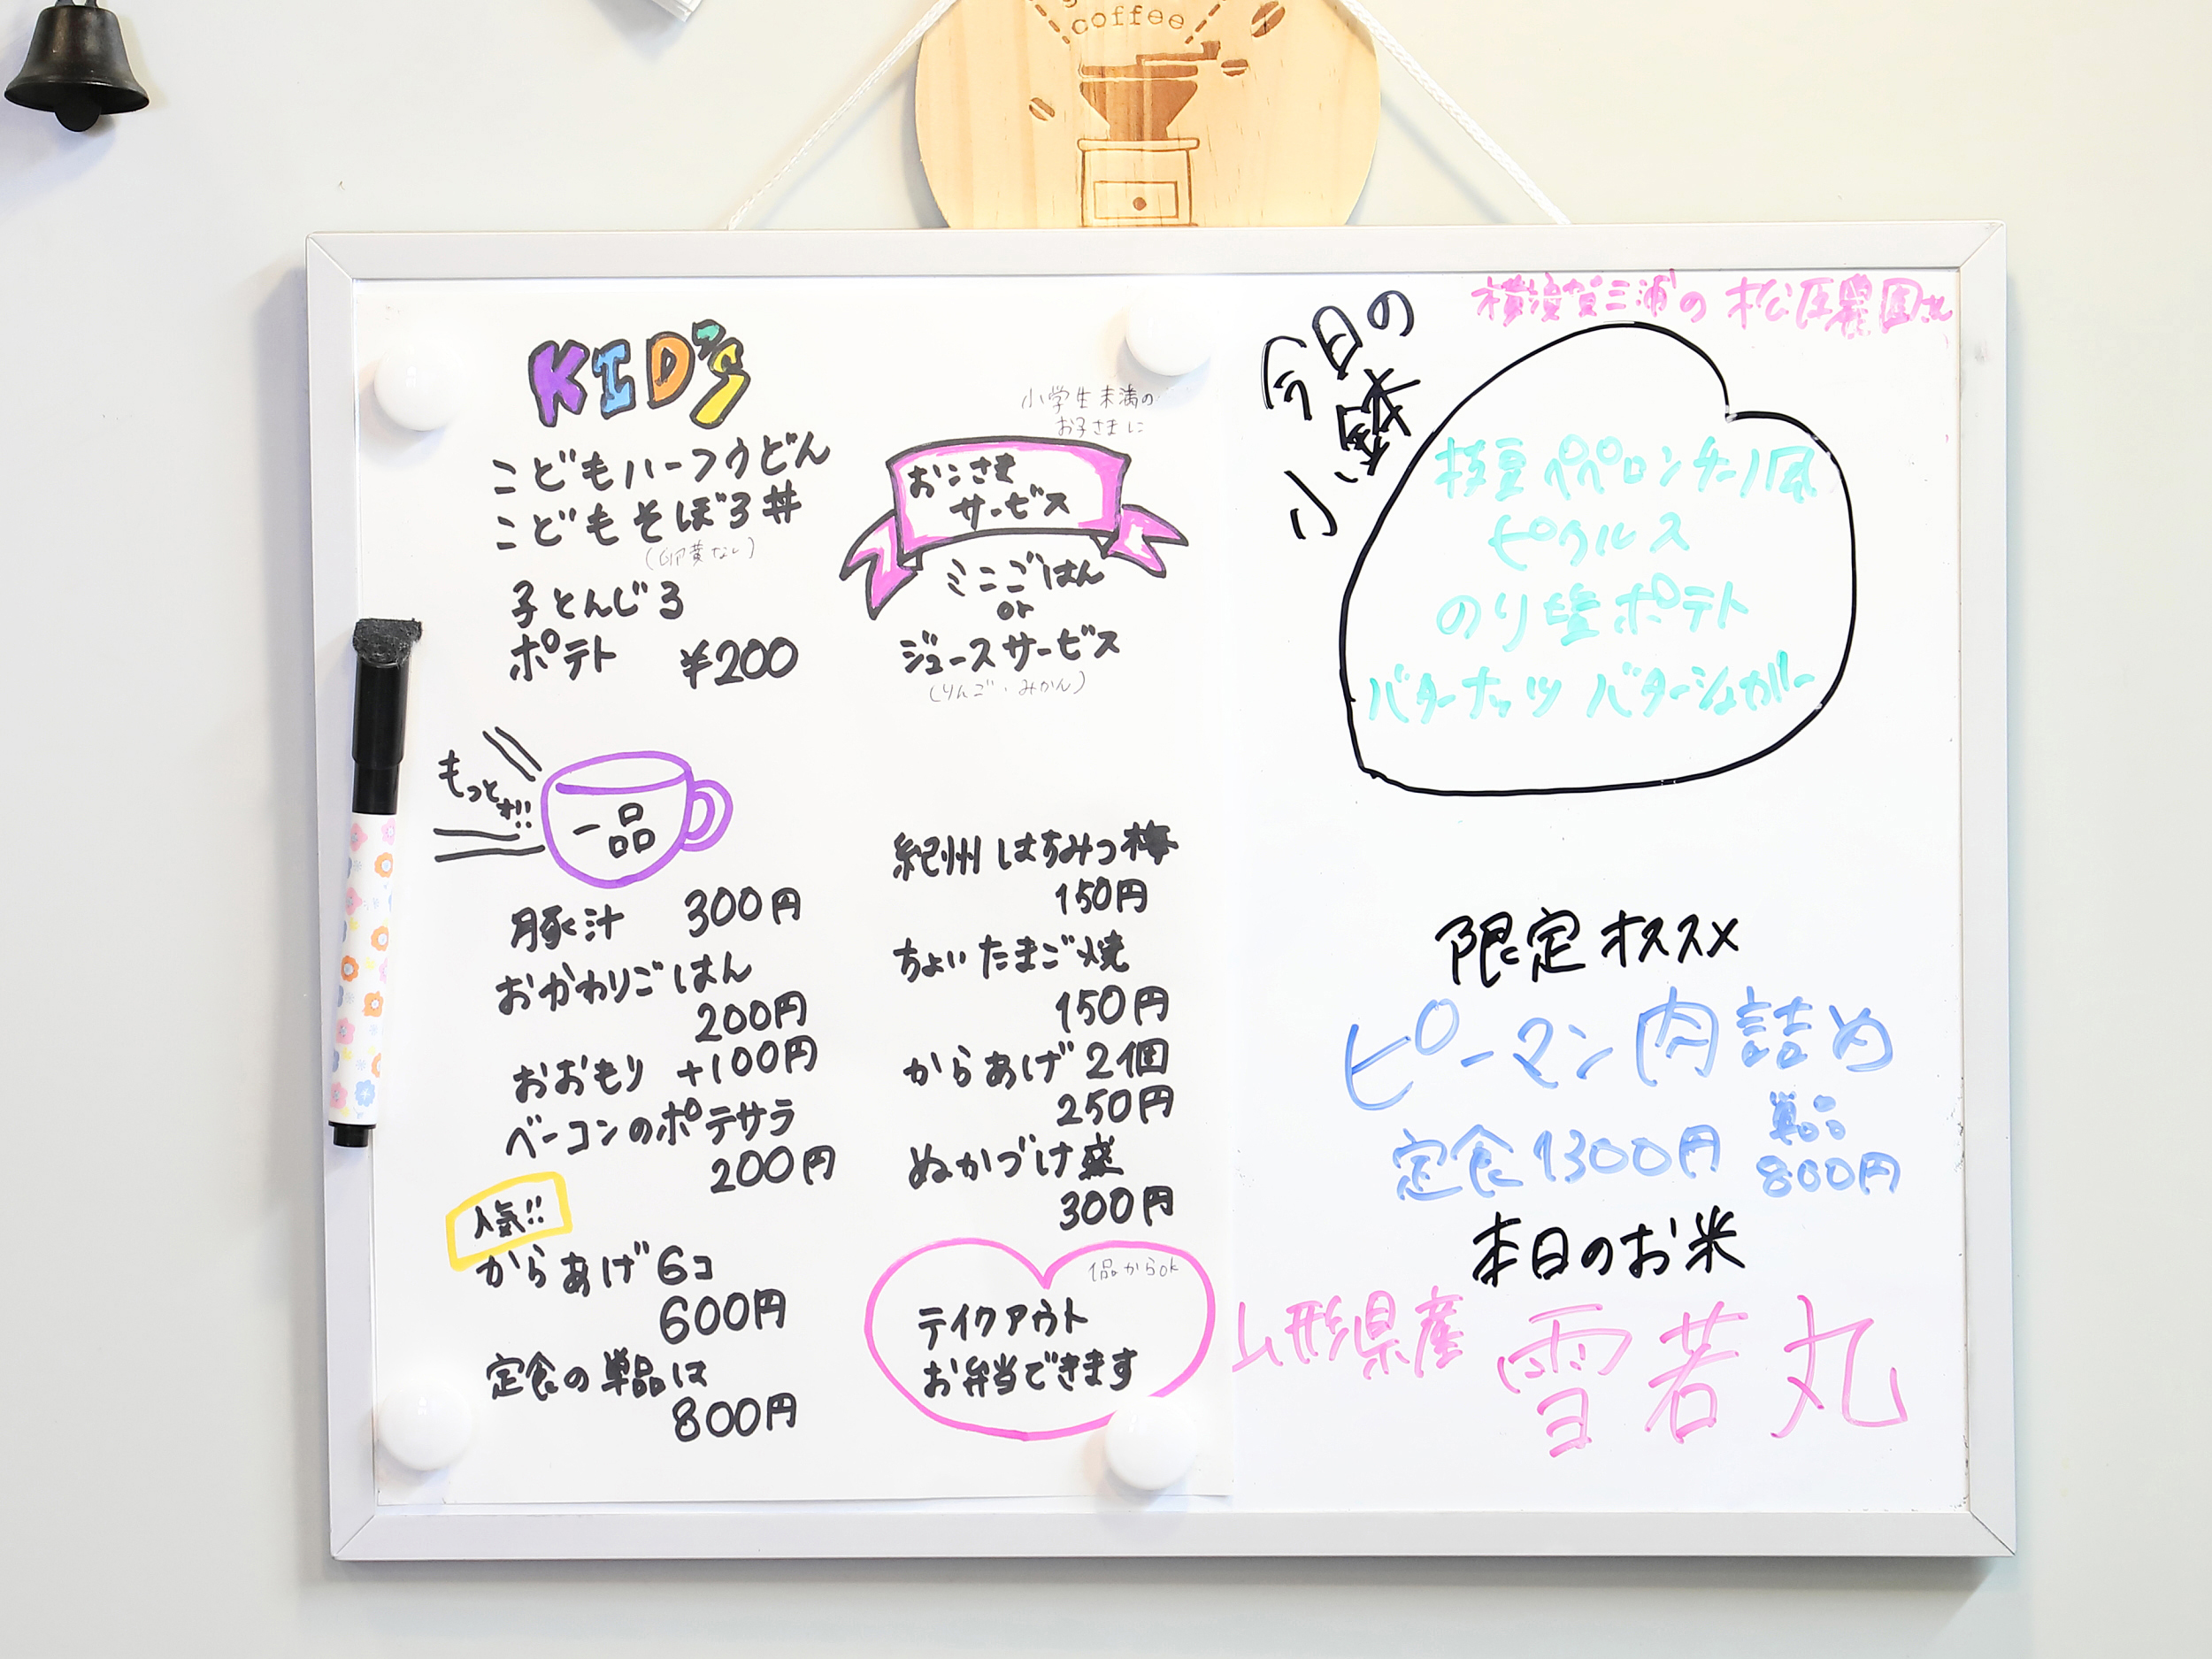 coffee
KID's
こどもハーフうどん
こどもそぼろ丼
(卵黄なし)
子とんじる
ポテト ¥200
小学生未満の
お子さまに
おこさま
サービス
ミニごはん
or
ジュースサービス
(りんご・みかん)
もっとオ!!
一品
豚汁 300円
おかわりごはん
200円
おおもり +100円
ベーコンのポテサラ
200円
人気!!
からあげ 6コ
600円
定食の単品は
800円
紀州はちみつ梅
150円
ちょいたまご焼
150円
からあげ 2個
250円
ぬかづけ盛
300円
1品からok
テイクアウト
お弁当できます
横須賀三浦の 農園さん
今日の
小鉢
枝豆ペペロンチーノ風
ピクルス
のり塩ポテト
バターナッツ バターシュガー
限定オススメ
ピーマン肉詰め
定食1300円 単品
800円
本日のお米
山形県産 雪若丸